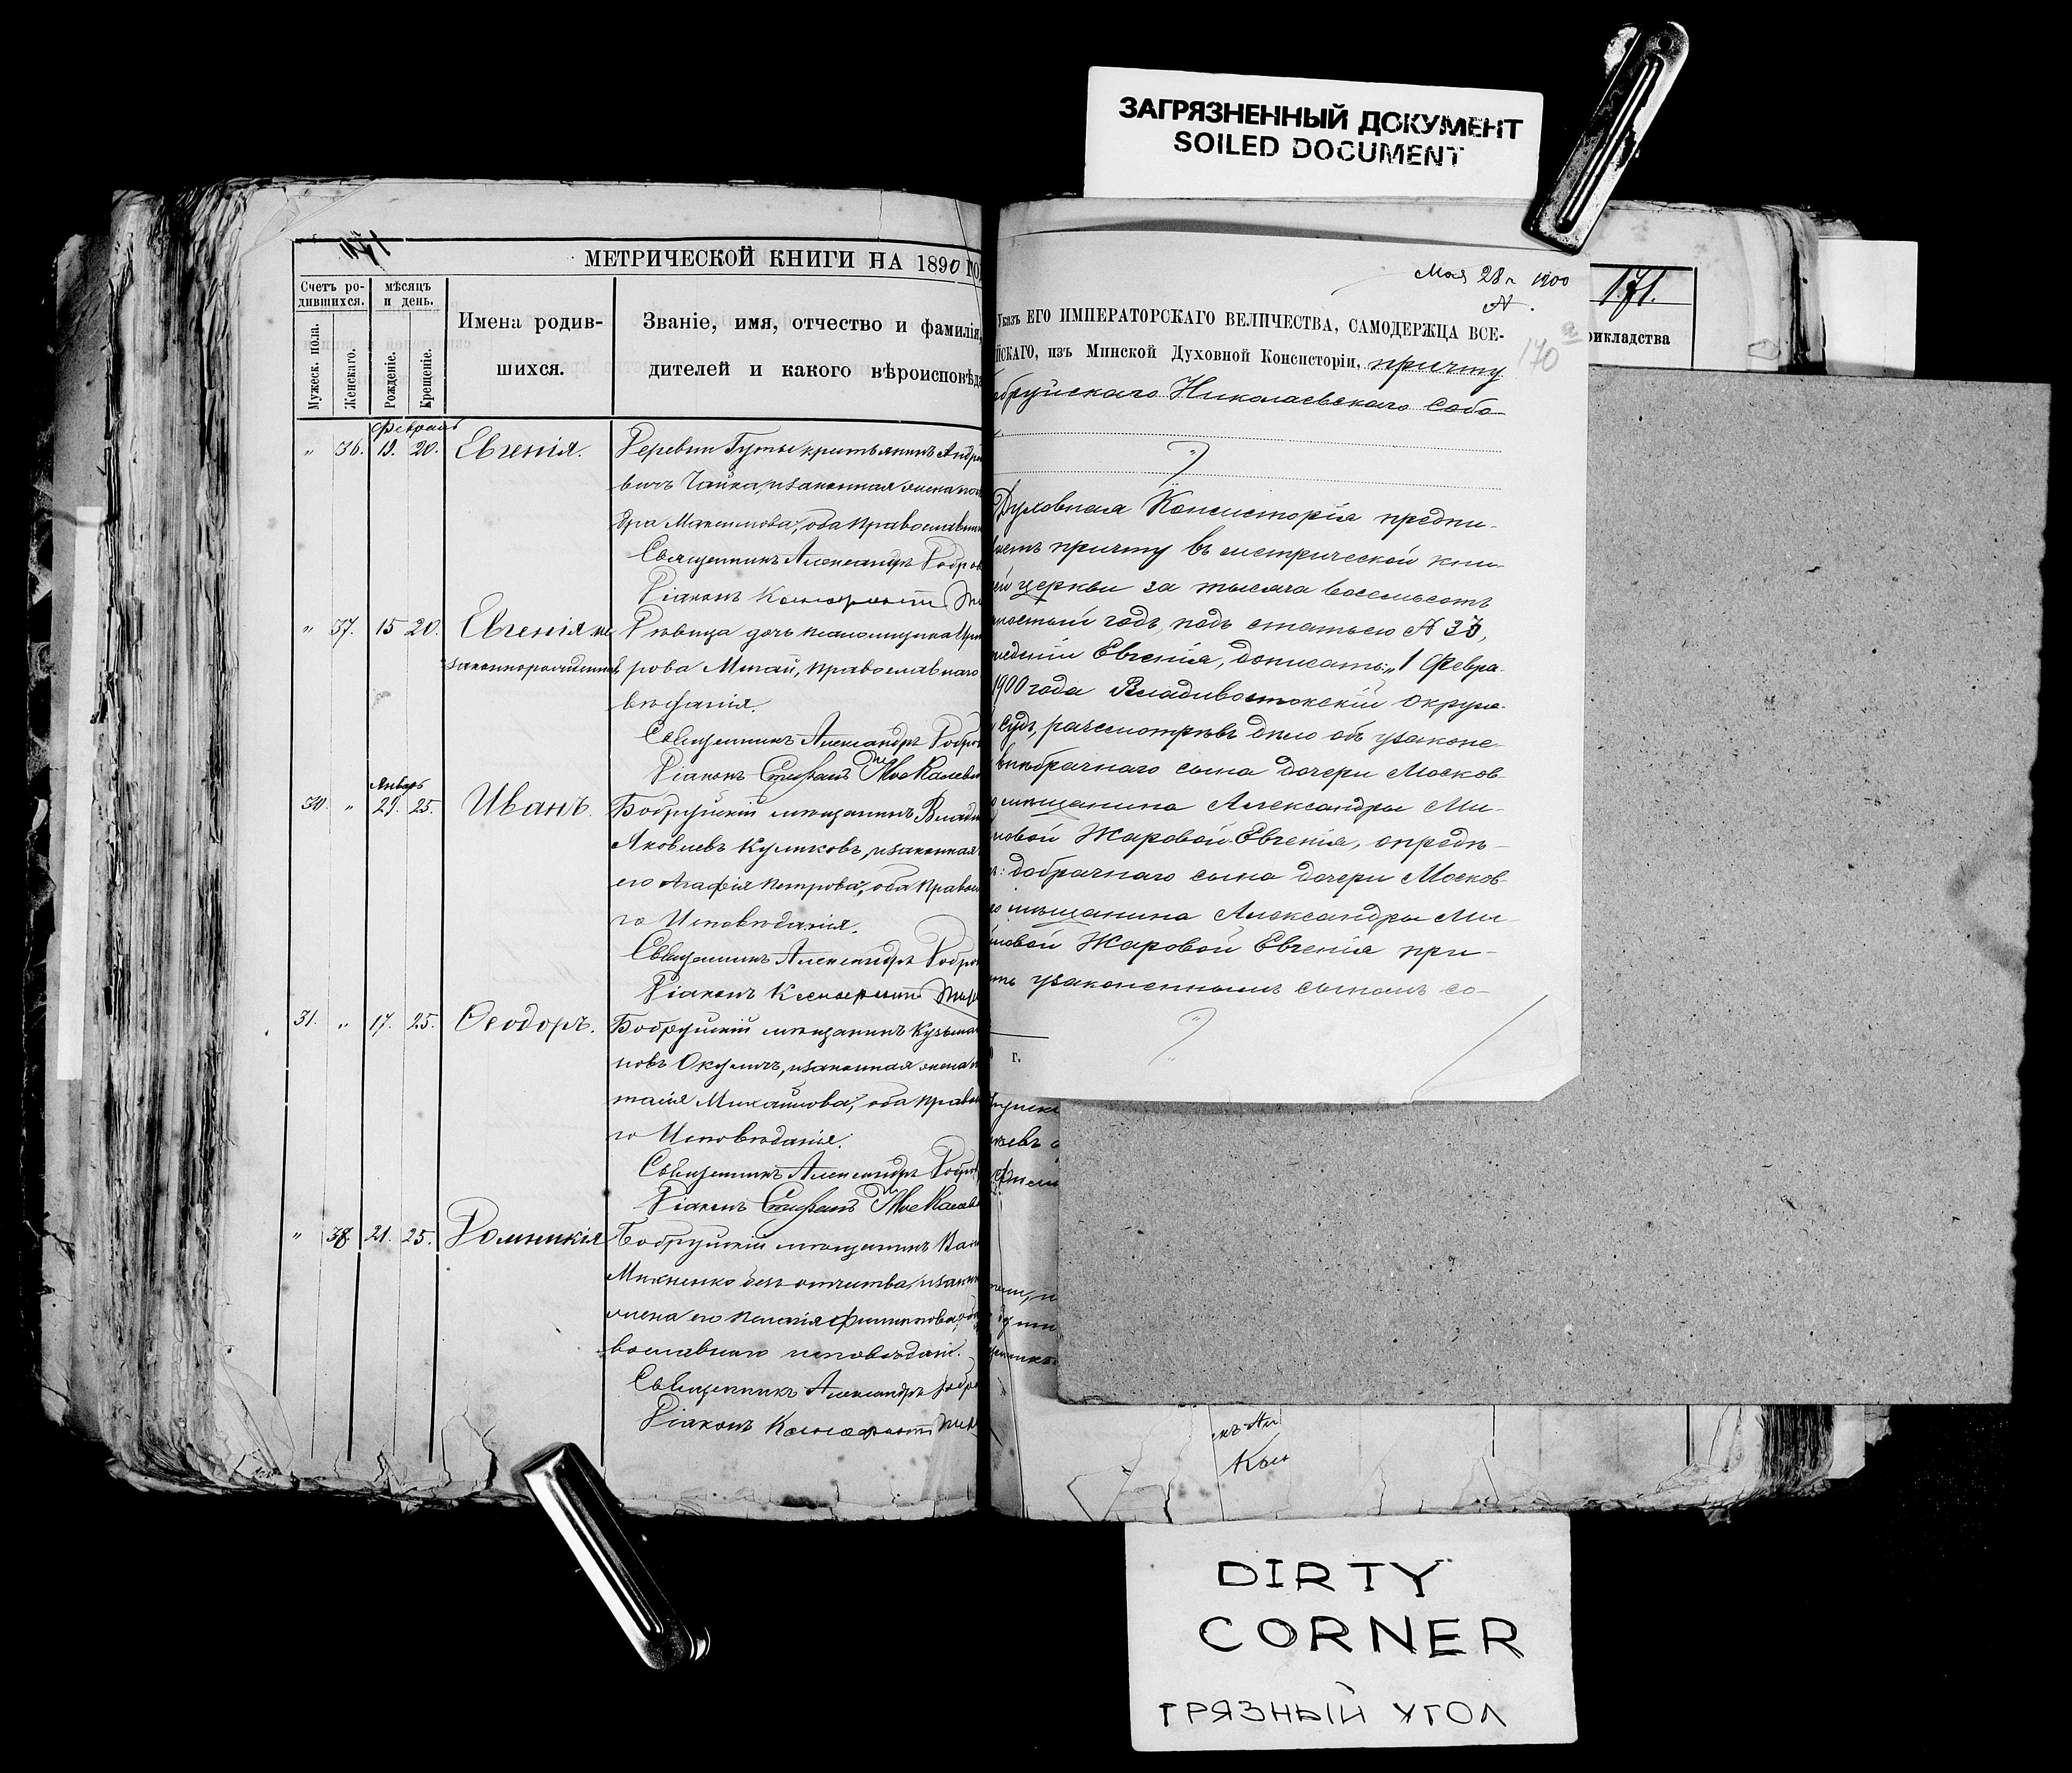 ЗАГРЯЗНЕННЫЙ ДОКУМЕНТ
SOILED DOCUMENT
171
МЕТРИЧЕСКОЙ КНИГИ НА 1890 ГО
Счетъ ро-
дившихся.
Мужеск. пола.
Женскаго.
мѣсяцъ
и день.
Рожденіе.
Крещеніе.
Имена родив-
шихся.
Званіе, имя, отчество и фамилія,
дителей и какого вѣроисповѣда
Февраль
" 36. 19. 20. Евгенія. Деревни Гуты крестьянинъ Андре
вичъ Чайка, и законная жена
Максимова, оба православн
Священникъ Александръ
Діаконъ
" 37. 15 20. Евгенія не
законнорожденный
Дѣвица дочь
рова Мигай, православнаго
Священникъ Александръ
Діаконъ Стефанъ
Январь
30. " 21. 25. Иванъ. Бобруйскій мѣщанинъ Влади
Яковлевъ Куликовъ, и законная
его Агафія Петрова, оба Право
го Исповѣданія.
Священникъ Александръ
Діаконъ
31. " 17. 25. Ѳеодоръ. Бобруйскій мѣщанинъ Кузьма
новъ Окуличъ, и законная жена
Михайлова, оба Право
го Исповѣданія.
Священникъ Александръ
Діаконъ Стефанъ
" 38 21. 25. Домникія Бобруйскій мѣщанинъ
Михненко безъ отчества, и закон
жена его Филиппова
вославнаго исповѣдані.
Священникъ Александръ
Діаконъ
Мая 28 1900
№.
Указъ ЕГО ИМПЕРАТОРСКАГО ВЕЛИЧЕСТВА, САМОДЕРЖЦА ВСЕ-
ЙСКАГО, изъ Минской Духовной Консисторіи, причту
обруйскаго Николаевскаго Собо-
170 а
171.
рикладства
Духовная Консисторія предпи-
ваетъ причту въ метрической кни-
ей церкви за тысяча восемьсотъ
ностый годъ, подъ статьею № 37,
деніи Евгенія, дописать: „1 Февра-
1900 года Владивостокскій Окруж-
Судъ, разсмотрѣвъ дѣло объ узаконе-
внѣбрачнаго сына дочери Москов-
о мѣщанина Александры Ми-
ловой Жаровой Евгенія, опредѣ-
ъ: добрачнаго сына дочери Москов-
о мѣщанина Александры Ми-
ловой Жаровой Евгенія при-
ть узаконеннымъ сыномъ со-
г.
DIRTY
CORNER
ГРЯЗНЫЙ УГОЛ